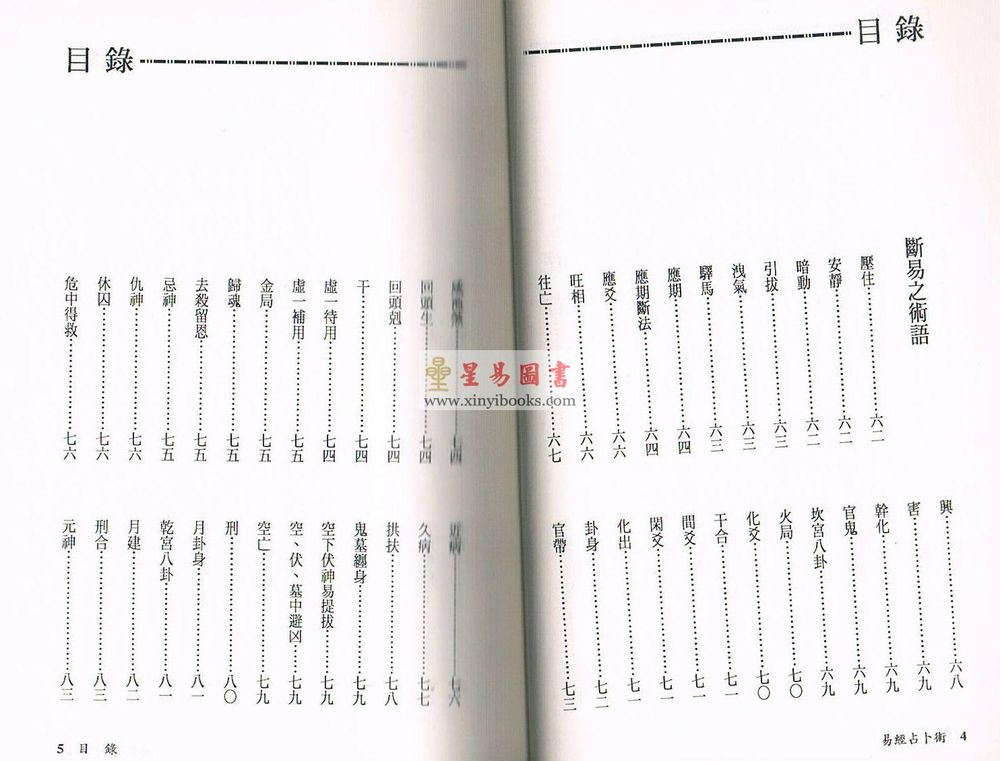 目錄
斷易之術語
壓住……六二
安靜……六二
暗動……六二
引拔……六三
洩氣……六三
驛馬……六三
應期……六四
應期斷法……六四
應爻……六六
旺相……六六
往亡……六七
興……六八
害……六九
幹化……六九
官鬼……六九
坎宮八卦……六九
火局……七〇
化爻……七〇
干合……七一
間爻……七一
閑爻……七一
化出……七一
卦身……七二
官帶……七三
易經占卜術 4
目錄
……七四
回頭生……七四
回頭剋……七四
干……七四
虛一待用……七四
虛一補用……七五
金局……七五
歸魂……七五
去殺留恩……七五
忌神……七五
仇神……七六
休囚……七六
危中得救……七六
近病……七六
久病……七七
拱扶……七八
鬼墓纏身……七九
空下伏神易提拔……七九
空、伏、墓中避凶……七九
空亡……七九
刑……八〇
月卦身……八一
乾宮八卦……八一
月建……八二
刑合……八三
元神……八三
5 目錄
星易圖書
www.xinyibooks.com